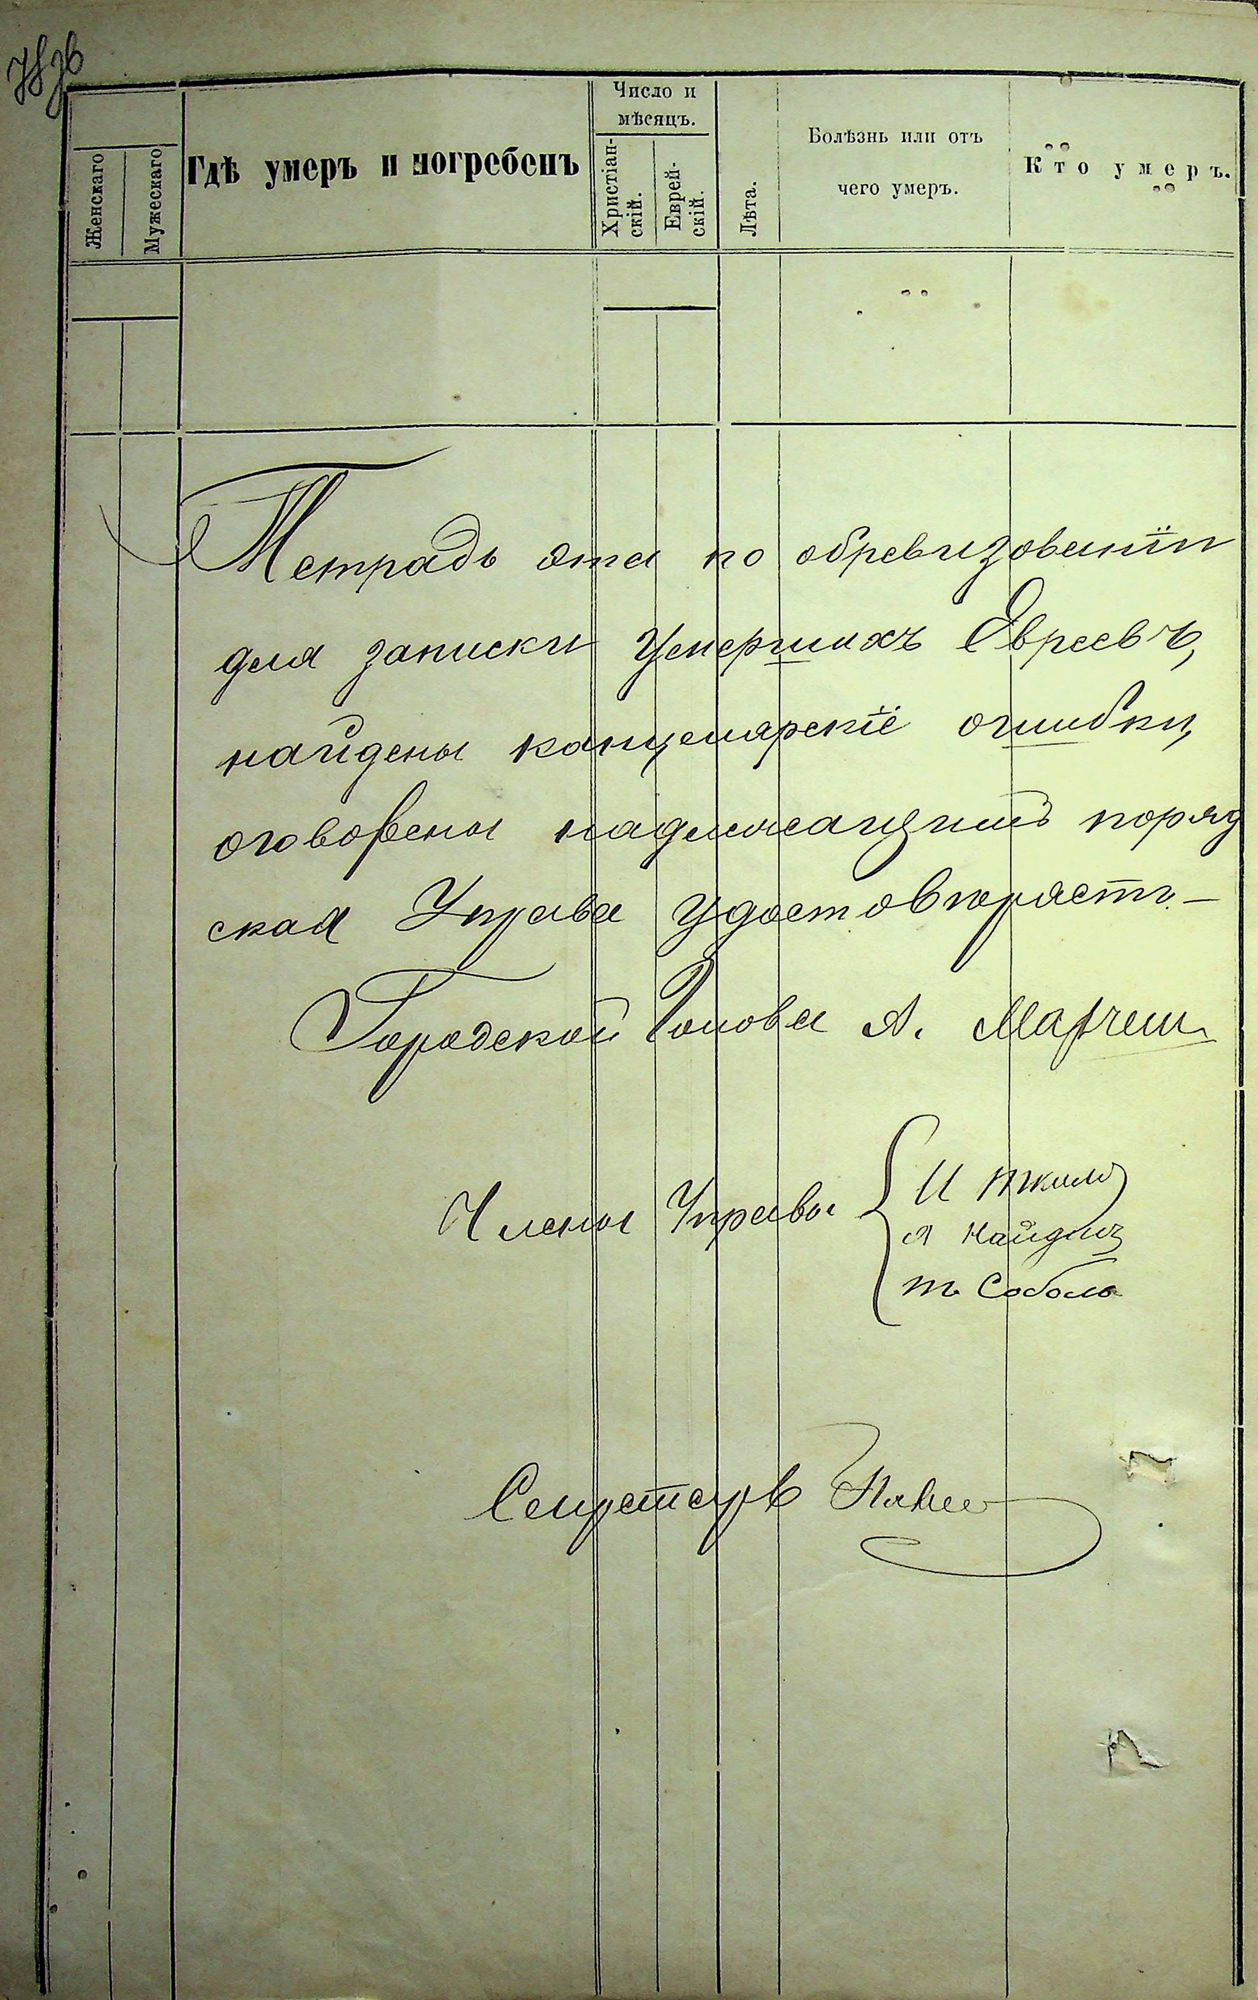 Женскаго
Мужескаго
Гдѣ умеръ и погребенъ
Число и
мѣсяцъ.
Христіан-
скій.
Еврей-
скій.
Лѣта.
Болѣзнь или отъ
чего умеръ.
Кто умеръ.
Тетрадь эта по обревизованіи
для записки Умершихъ Евреевъ,
найдены канцелярскіе ошибки,
оговорены надлежащимъ поряд
ская Управа удостовѣряетъ. —
Городской Голова А.
Члены Управы
И
А
Т. Соболь
Секретарь